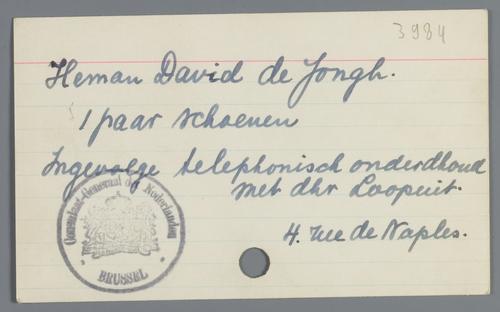 3984
Heman David de Jongh.
1 paar schoenen
Ingevolge telephonisch onderdhoud
met dhr Loopuit.
4. rue de Naples.
Consulaat-Generaal der Nederlanden
BRUSSEL